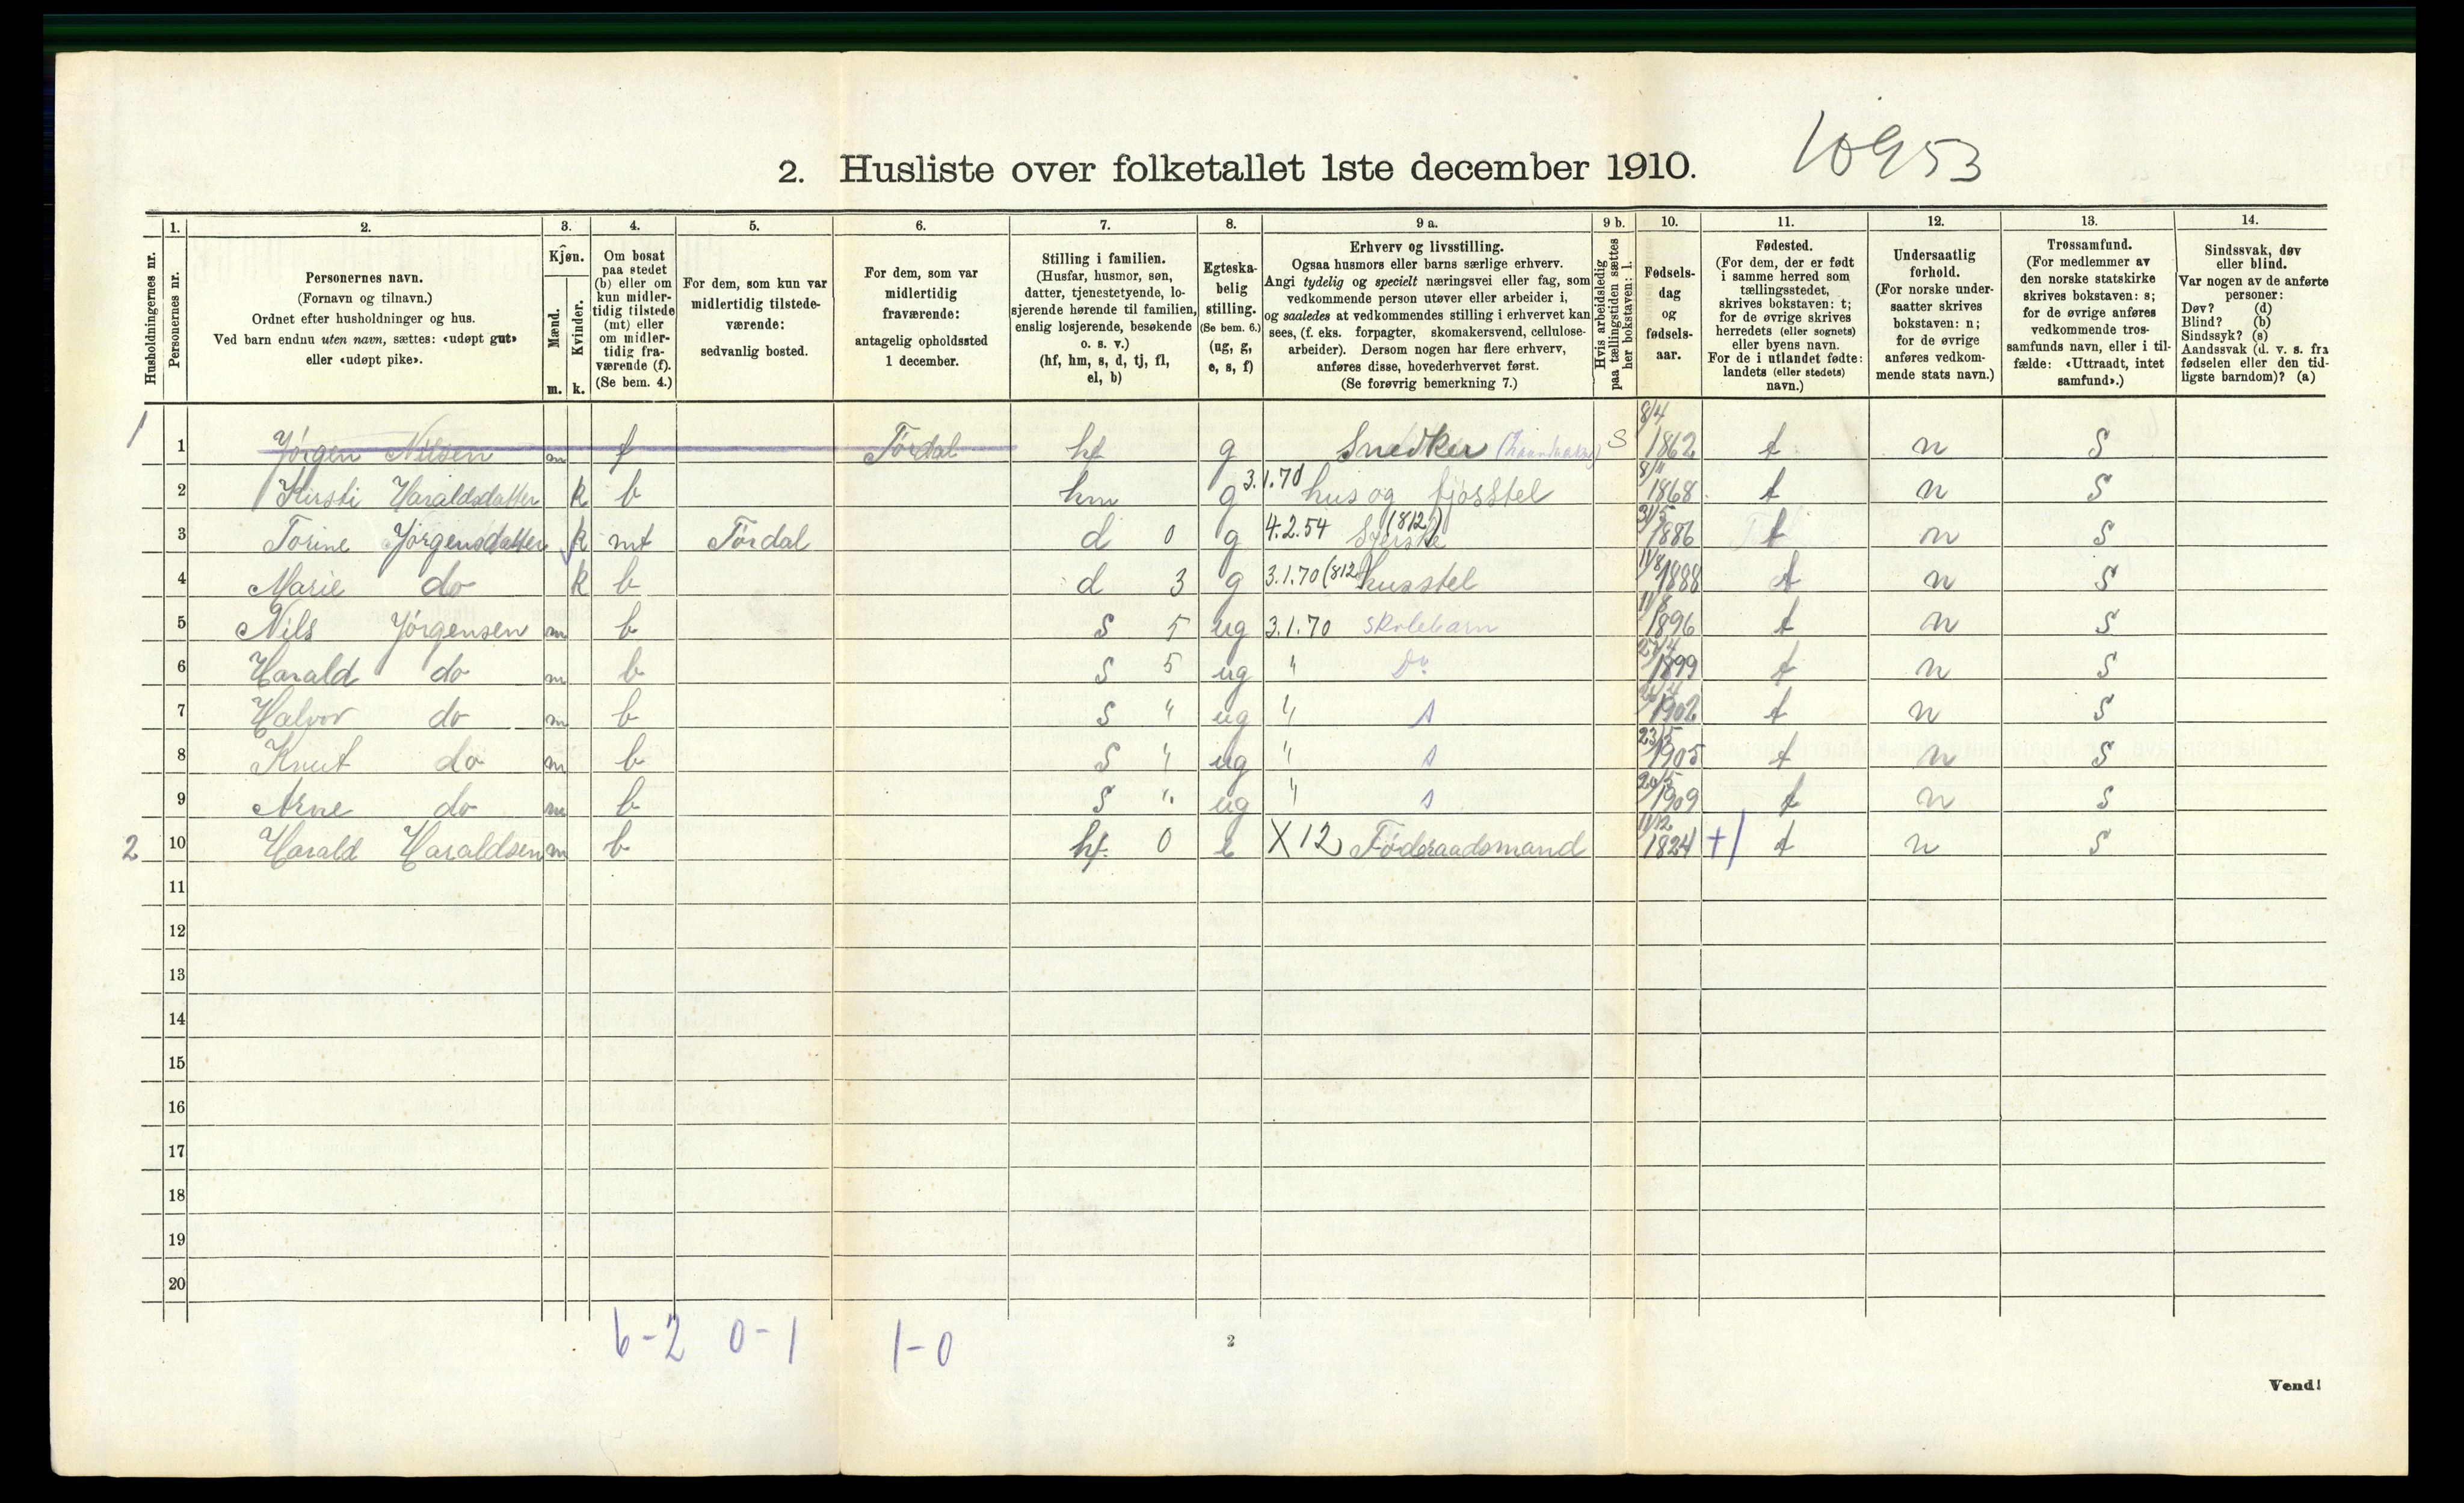 2. Husliste over folketallet 1ste december 1910.
10953
1. 2. 3. 4. 5. 6. 7. 8. 9 a. 9 b. 10. 11. 12. 13. 14.
Husholdningernes nr.
Personernes nr.
Personernes navn.
(Fornavn og tilnavn.)
Ordnet efter husholdninger og hus.
Ved barn endnu uten navn, sættes: «udøpt gut»
eller «udøpt pike».
Kjøn.
Mænd.
Kvinder.
m. k.
Om bosat
paa stedet
(b) eller om
kun midler-
tidig tilstede
(mt) eller
om midler-
tidig fra-
værende (f).
(Se bem. 4.)
For dem, som kun var
midlertidig tilstede-
værende:
sedvanlig bosted.
For dem, som var
midlertidig
fraværende:
antagelig opholdssted
1 december.
Stilling i familien.
(Husfar, husmor, søn,
datter, tjenestetyende, lo-
sjerende hørende til familien,
enslig losjerende, besøkende
o. s. v.)
(hf, hm, s, d, tj, fl,
el, b)
Egteska-
belig
stilling.
(Se bem. 6.)
(ug, g,
e, s, f)
Erhverv og livsstilling.
Ogsaa husmors eller barns særlige erhverv.
Angi tydelig og specielt næringsvei eller fag, som
vedkommende person utøver eller arbeider i,
og saaledes at vedkommendes stilling i erhvervet kan
sees, (f. eks. forpagter, skomakersvend, cellulose-
arbeider). Dersom nogen har flere erhverv,
anføres disse, hovederhvervet først.
(Se forøvrig bemerkning 7.)
Hvis arbeidsledig
paa tællingstiden sættes
her bokstaven: l.
Fødsels-
dag
og
fødsels-
aar.
Fødested.
(For dem, der er født
i samme herred som
tællingsstedet,
skrives bokstaven: t;
for de øvrige skrives
herredets (eller sognets)
eller byens navn.
For de i utlandet fødte:
landets (eller stedets)
navn.)
Undersaatlig
forhold.
(For norske under-
saatter skrives
bokstaven: n;
for de øvrige
anføres vedkom-
mende stats navn.)
Trossamfund.
(For medlemmer av
den norske statskirke
skrives bokstaven: s;
for de øvrige anføres
vedkommende tros-
samfunds navn, eller i til-
fælde: «Uttraadt, intet
samfund».)
Sindssvak, døv
eller blind.
Var nogen av de anførte
personer:
Døv? (d)
Blind? (b)
Sindssyk? (s)
Aandssvak (d. v. s. fra
fødselen eller den tid-
ligste barndom)? (a)
1 1 Jørgen Nilsen m f Tørdal hf g Snedker S 8/4 1862 t n S
2 Kirsti Haraldsdatter k b hm g 3.1.70 hus og fjøsstel 8/11 1868 t n S
3 Torine Jørgensdatter k mt Tørdal d 0 g 4.2.54 (812) Syerske 31/5 1886 t n S
4 Marie do k b d 3 g 3.1.70 (812) husstel 11/8 1888 t n S
5 Nils Jørgensen m b S 5 ug 3.1.70 skolebarn 11/8 1896 t n S
6 Harald do m b S 5 ug " Do 1899 t n S
7 Halvor do m b S " ug " s 1902 t n S
8 Knut do m b S " ug " s 1905 t n S
9 Arne do m b S " ug " s 20/5 1909 t n S
2 10 Harald Haraldsen m b hf. 0 e X 12 Føderaadsmand 11/12 1824 + t n S
11
12
13
14
15
16
17
18
19
20
6-2 0-1 1-0
2
Vend!